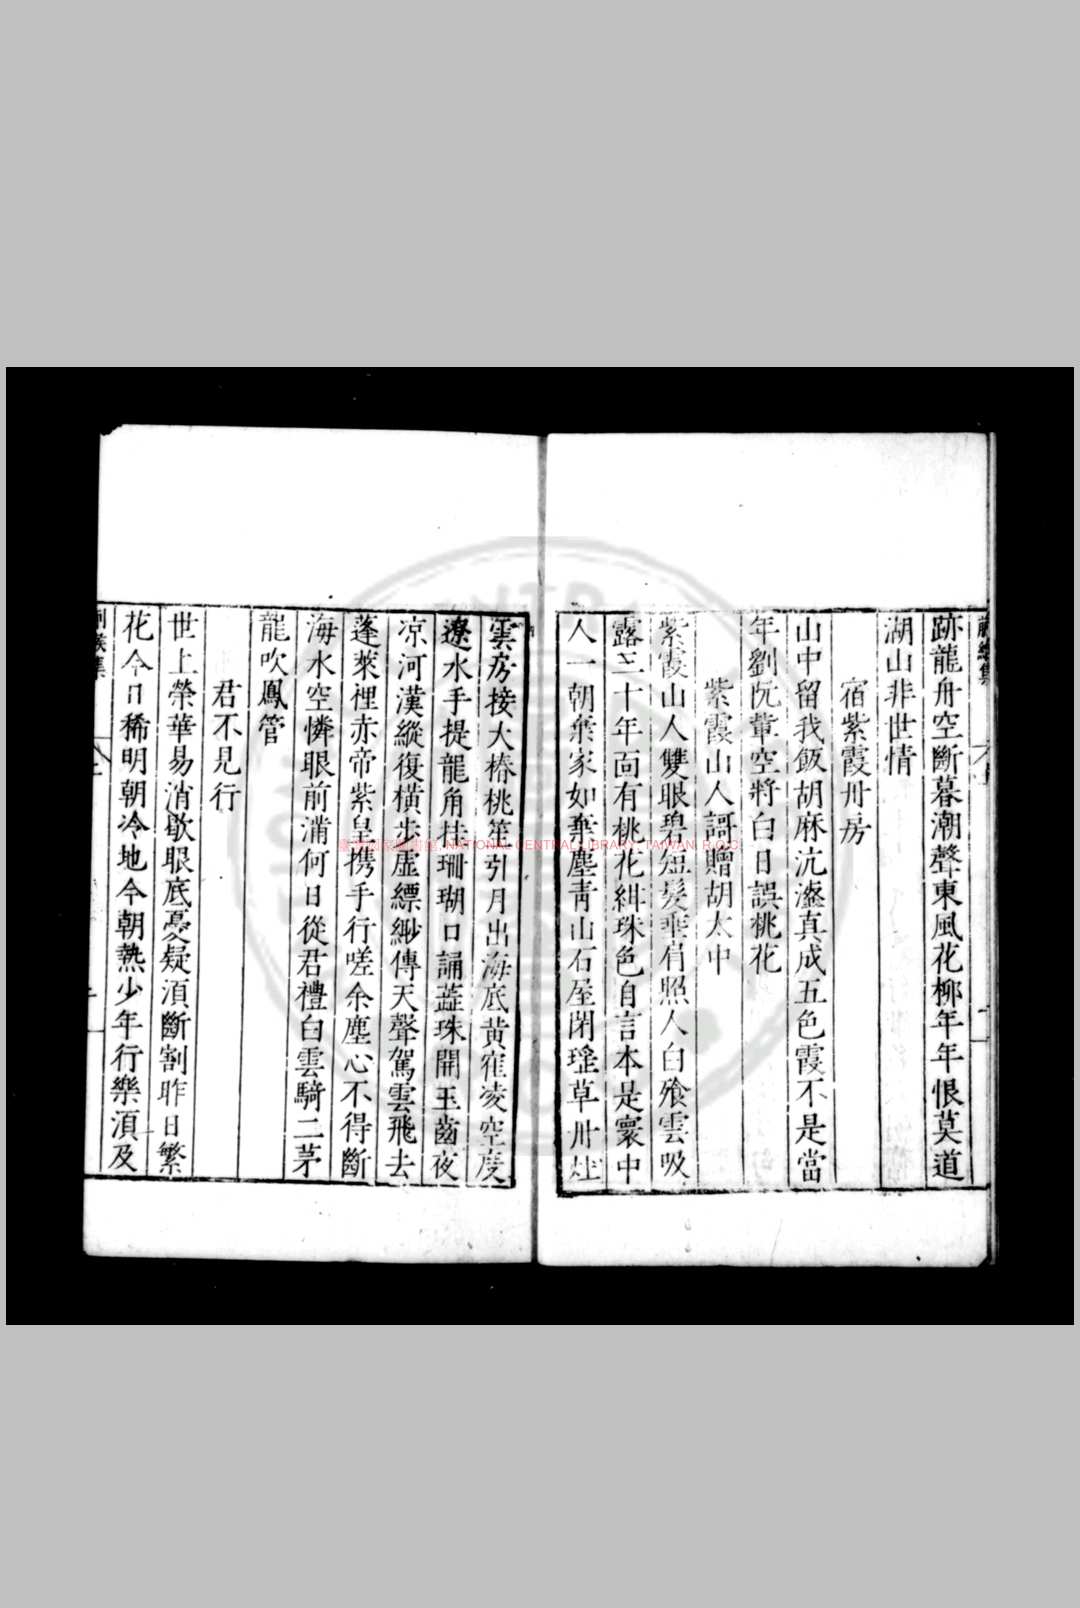 跡龍舟空斷暮潮聲東風花柳年年恨莫道
湖山非世情
宿紫霞丹房
山中留我飯胡麻沆瀣真成五色霞不是當
年劉阮軰空將白日誤桃花
紫霞山人謌贈胡太中
紫霞山人雙眼碧短髮垂肩照人白飱雲吸
露三十年面有桃花緋珠色自言本是寰中
人一朝棄家如棄塵青山石屋閉瑤草丹竈
雲房接大椿桃笙引月出海底黃寉凌空度
遼水手提龍角拄珊瑚口誦蘂珠開玉齒夜
凉河漢縱復橫步虛縹緲傳天聲駕雲飛去
蓬萊裡赤帝紫皇携手行嗟余塵心不得斷
海水空憐眼前滿何日從君禮白雲騎二茅
龍吹鳳管
君不見行
世上榮華易消歇眼底憂疑湏斷割昨日繁
花今日稀明朝冷地今朝熱少年行樂湏及
臺灣國家圖書館, NATIONAL CENTRAL LIBRARY, TAIWAN, R.O.C.